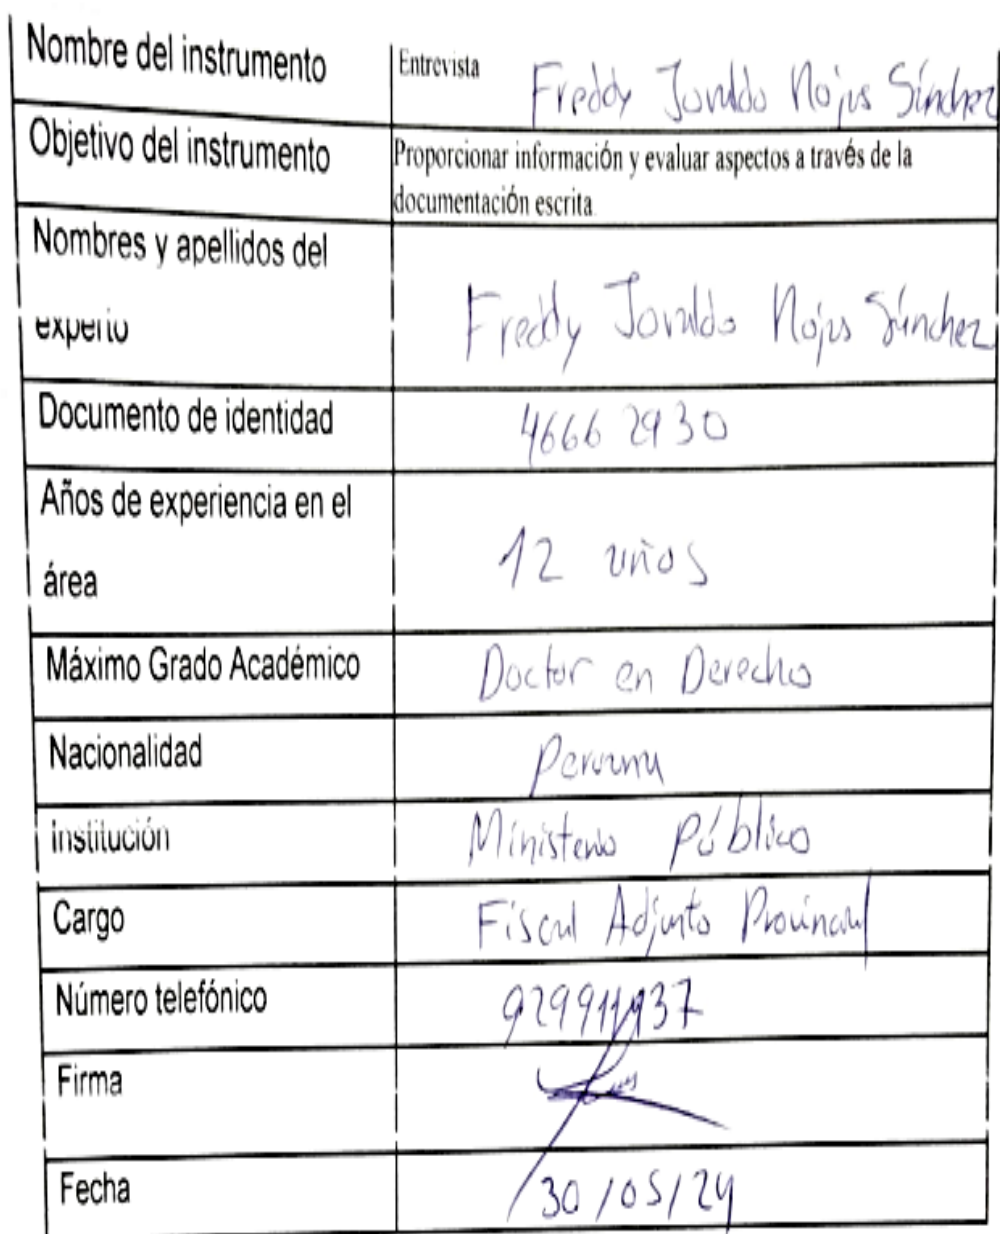 Nombre del instrumento
Entrevista Freddy Joraldo Rojas Sánchez
Objetivo del instrumento
Proporcionar información y evaluar aspectos a través de la
documentación escrita.
Nombres y apellidos del
experto
Freddy Joraldo Rojas Sánchez
Documento de identidad
4666 2930
Años de experiencia en el
área
12 años
Máximo Grado Académico
Doctor en Derecho
Nacionalidad
Peruana
Institución
Ministerio Público
Cargo
Fiscal Adjunto Provincial
Número telefónico
Firma
Fecha
30/05/24